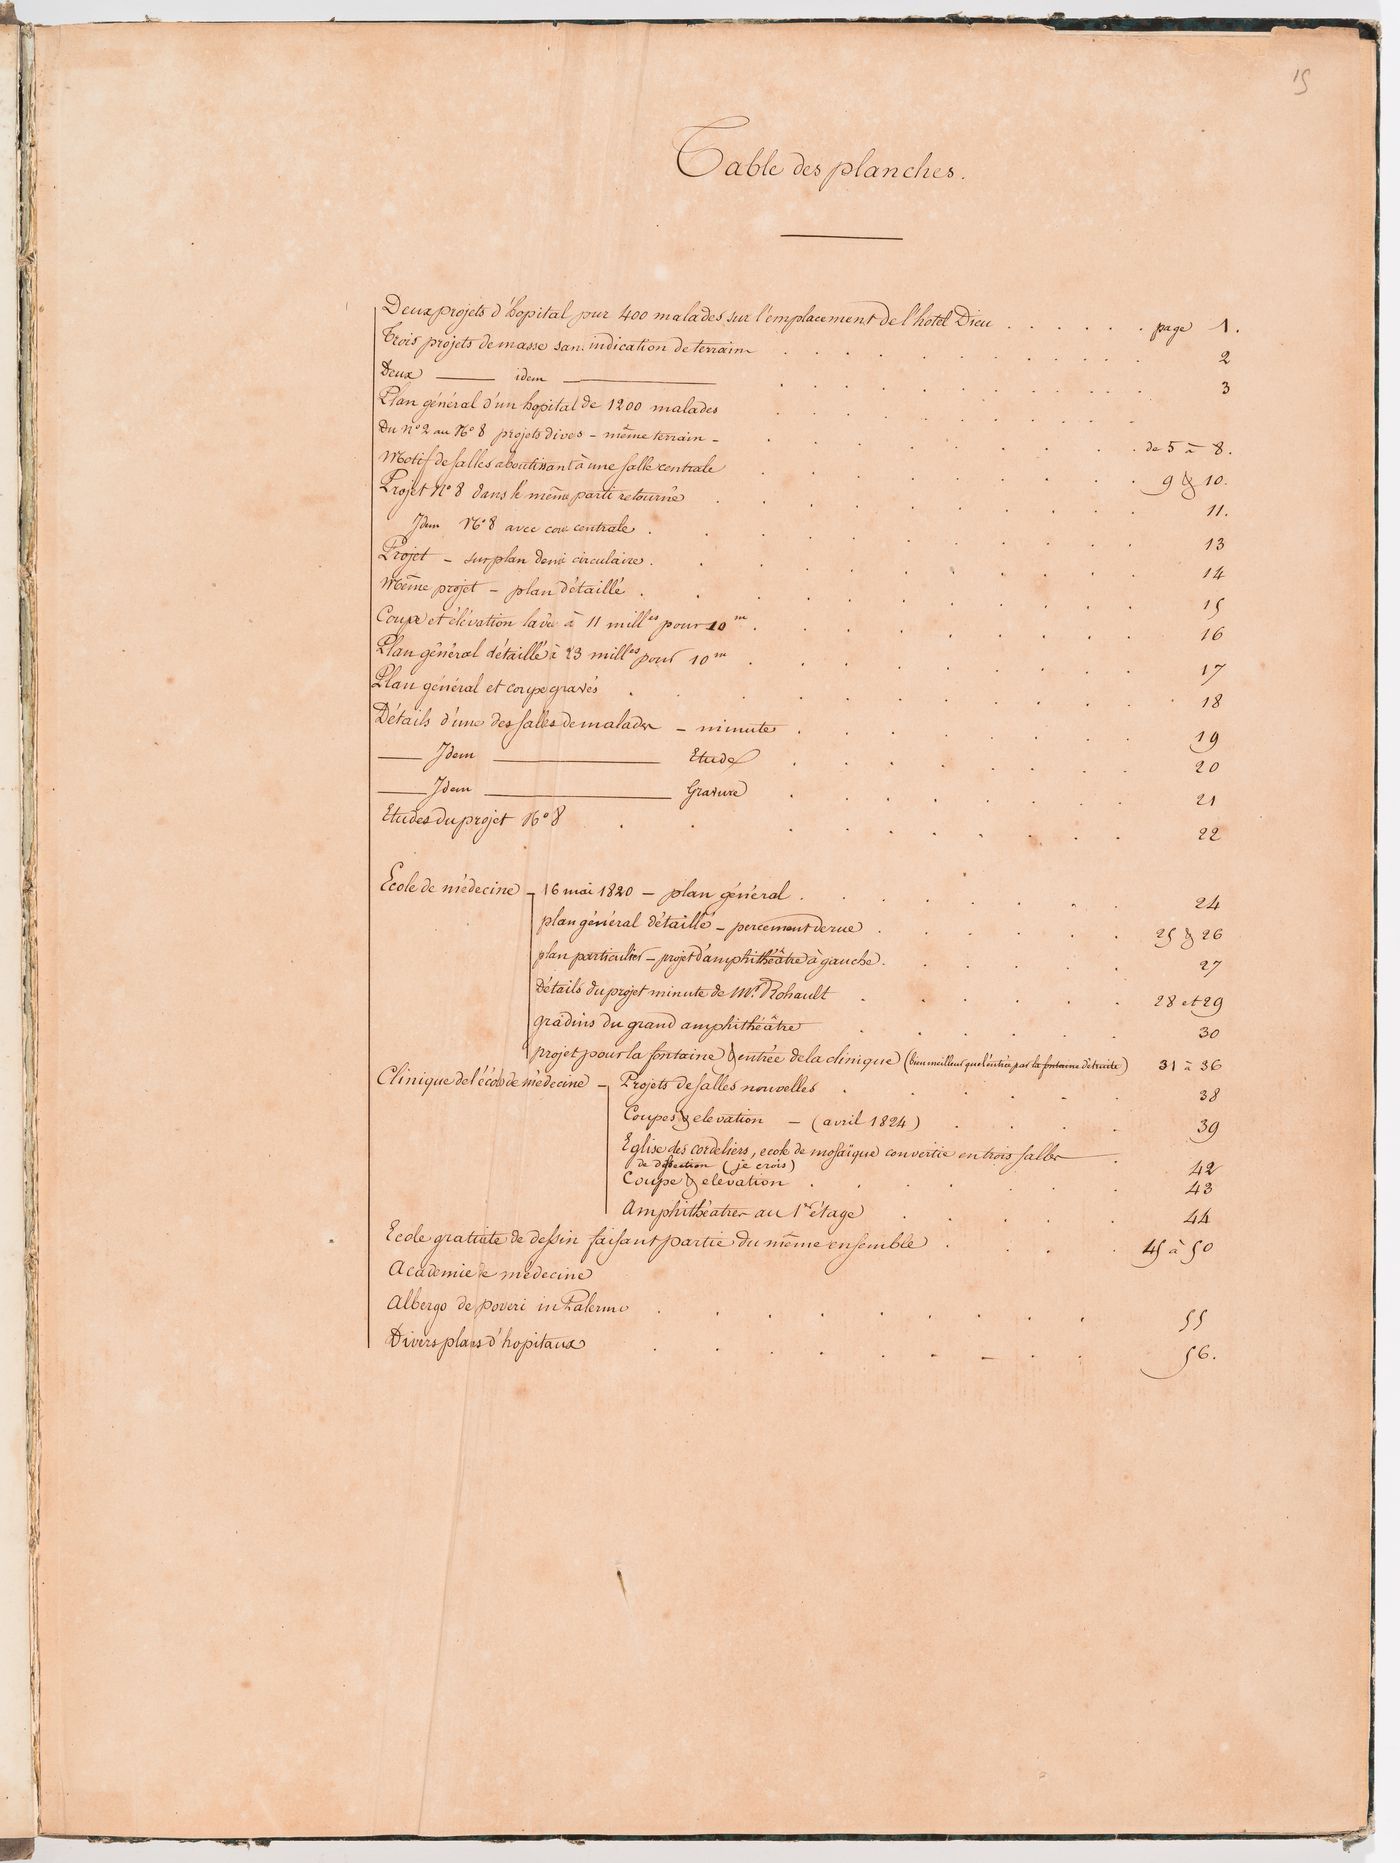 15
Table des planches.
Deux projets d'hopital pour 400 malades sur l'emplacement de l'hotel Dieu . . . . . . page 1.
Trois projets de masse sans indication de terrain . . . . . . 2
Deux — idem — . . . . . . 3
Plan général d'un hopital de 1200 malades . . . . . .
Du N° 2 au N° 8 projets divers - même terrain - . . . . . . de 5 à 8.
Motif de salles aboutissant à une salle centrale . . . . . . 9 & 10.
Projet N° 8 dans le même parti retourné . . . . . . 11.
Idem N° 8 avec cour centrale . . . . . . 13
Projet - sur plan demi circulaire . . . . . . 14
Même projet - plan détaillé . . . . . . 15
Coupe et élévation lavée à 11 milles pour 10m . . . . . . 16
Plan général détaillé à 23 milles pour 10m . . . . . . 17
Plan général et coupe gravés . . . . . . 18
Détails d'une des salles de malades - minute . . . . . . 19
— Idem — Etude . . . . . . 20
— Idem — Gravure . . . . . . 21
Etudes du projet N° 8 . . . . . . 22
Ecole de médecine - 16 mai 1820 - plan général . . . . . . 24
plan général détaillé - percement de rue . . . . . . 25 & 26
plan particulier - projet d'amphithéâtre à gauche . . . . . . 27
Détails du projet minute de Mr Rohault . . . . . . 28 et 29
gradins du grand amphithéâtre . . . . . . 30
projet pour la fontaine & entrée de la clinique (bien meilleur que l'entrée par la fontaine détruite) 31 à 36
Clinique de l'école de médecine - Projets de salles nouvelles . . . . . . 38
Coupes & elevation - (avril 1824) . . . . . . 39
Eglise des cordeliers, ecole de mosaïque convertie en trois salles
de dissection (je crois) . 42
Coupe & elevation . . . . . . 43
Amphithéatre au 1er étage . . . . . . 44
Ecole gratuite de dessin faisant partie du même ensemble . . . . 45 à 50
Academie de médecine
Albergo de poveri in Palermo . . . . . . 55
Divers plans d'hopitaux . . . . . . 56.